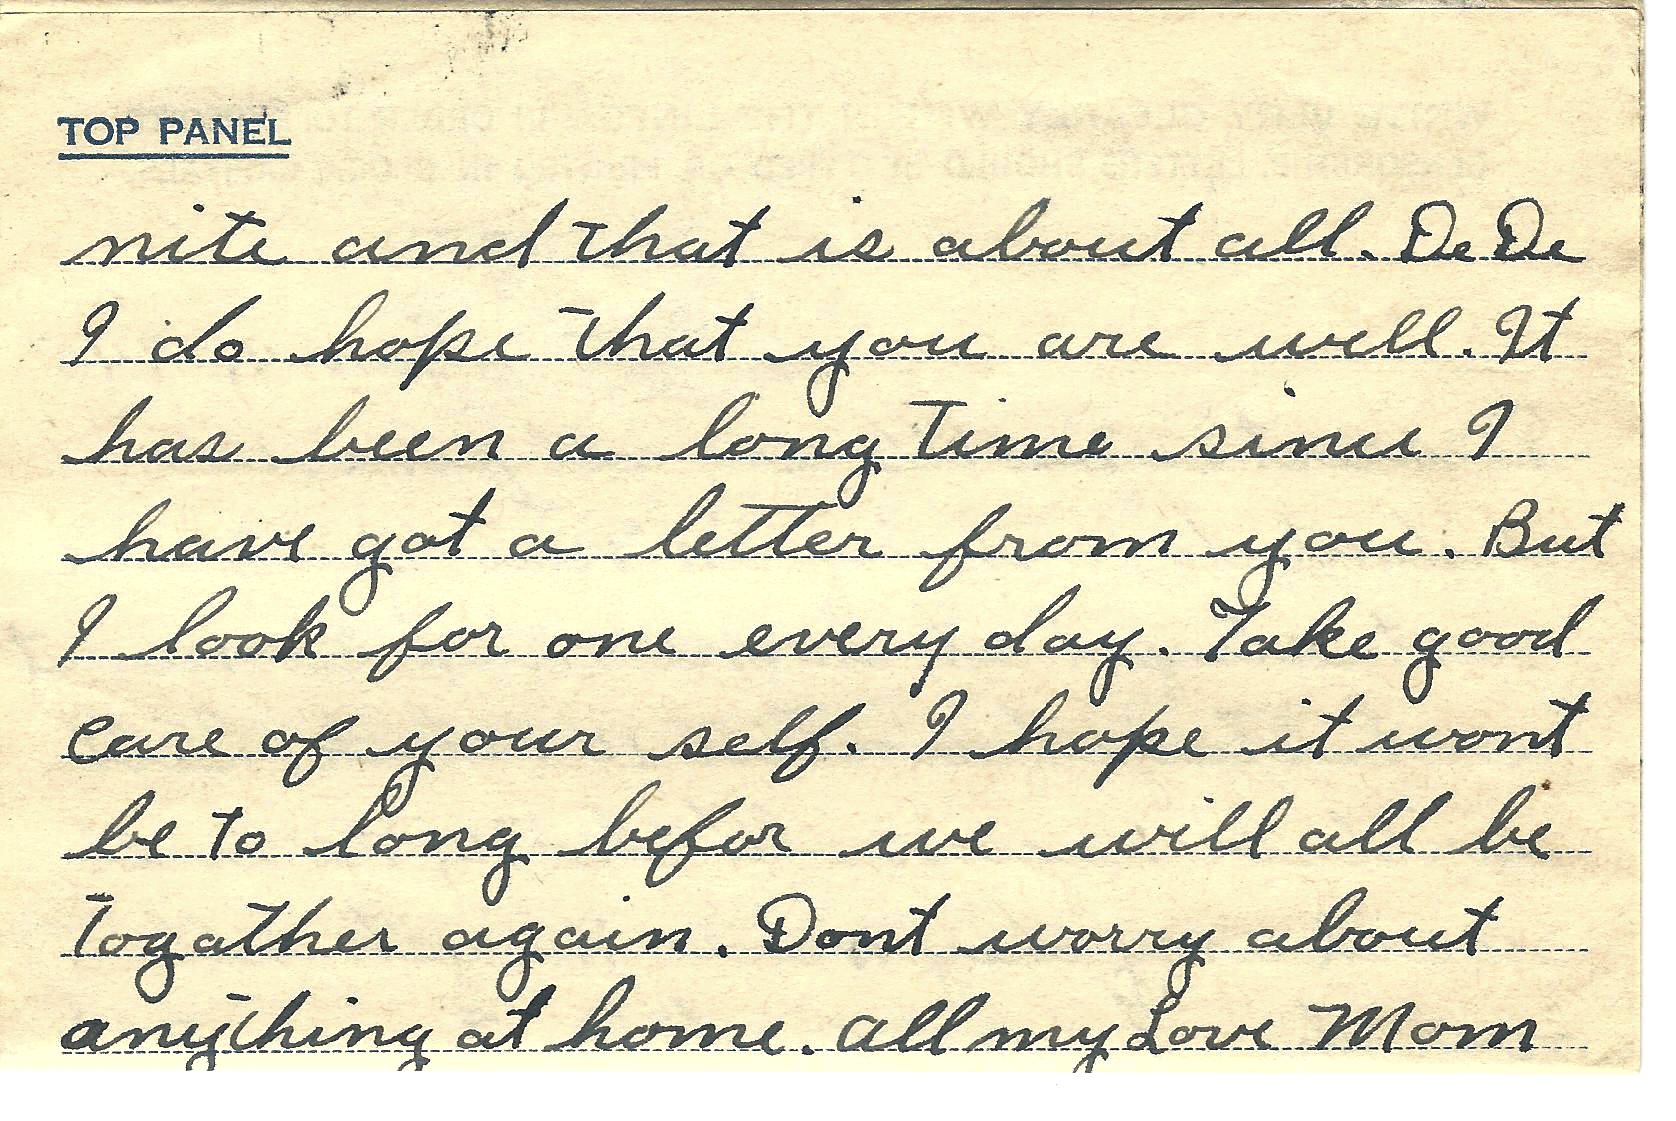 TOP PANEL
nite and that is about all. De De
I do hope that you are well. It
has been a long time since I
have got a letter from you. But
I look for one every day. Take good
care of your self. I hope it wont
be to long befor we will all be
togather again. Dont worry about
anything at home. all my Love Mom